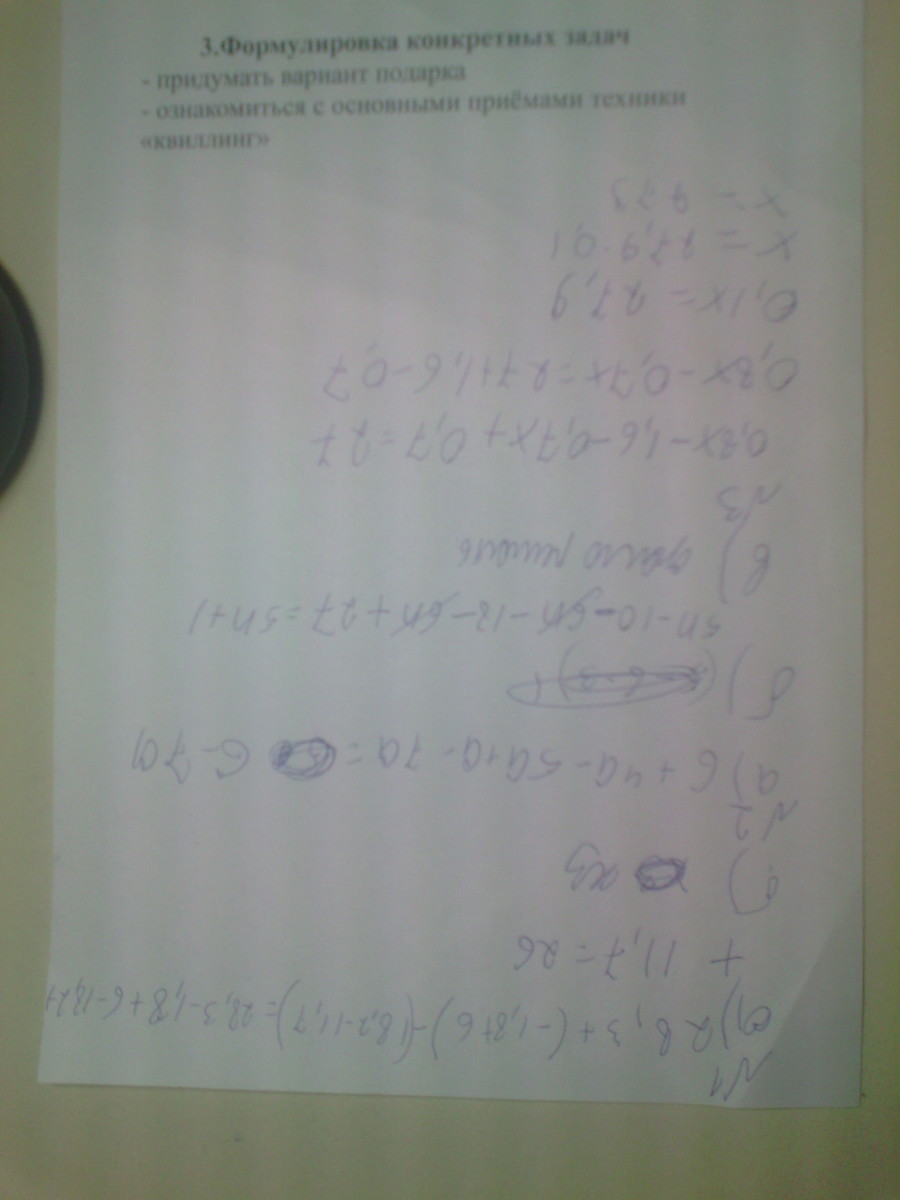 3.Формулировка конкретных задач
- придумать вариант подарка
- ознакомиться с основными приёмами техники
«квиллинг»
№1
а) 28,3 + (-1,8+6) - (18,2-11,7) = 28,3-1,8+6-18,2+
+ 11,7 = 26
б) хз
№2
а) 6 + 4а - 5а+а - 7а = 6-7а
б)
5n-10-6n-12-6n+27=5n+1
в)
№3
0,8x - 1,6 - 0,7x + 0,7 = 27
0,8x - 0,7x = 27+1,6-0,7
0,1x = 27,9
x = 27,9·0,1